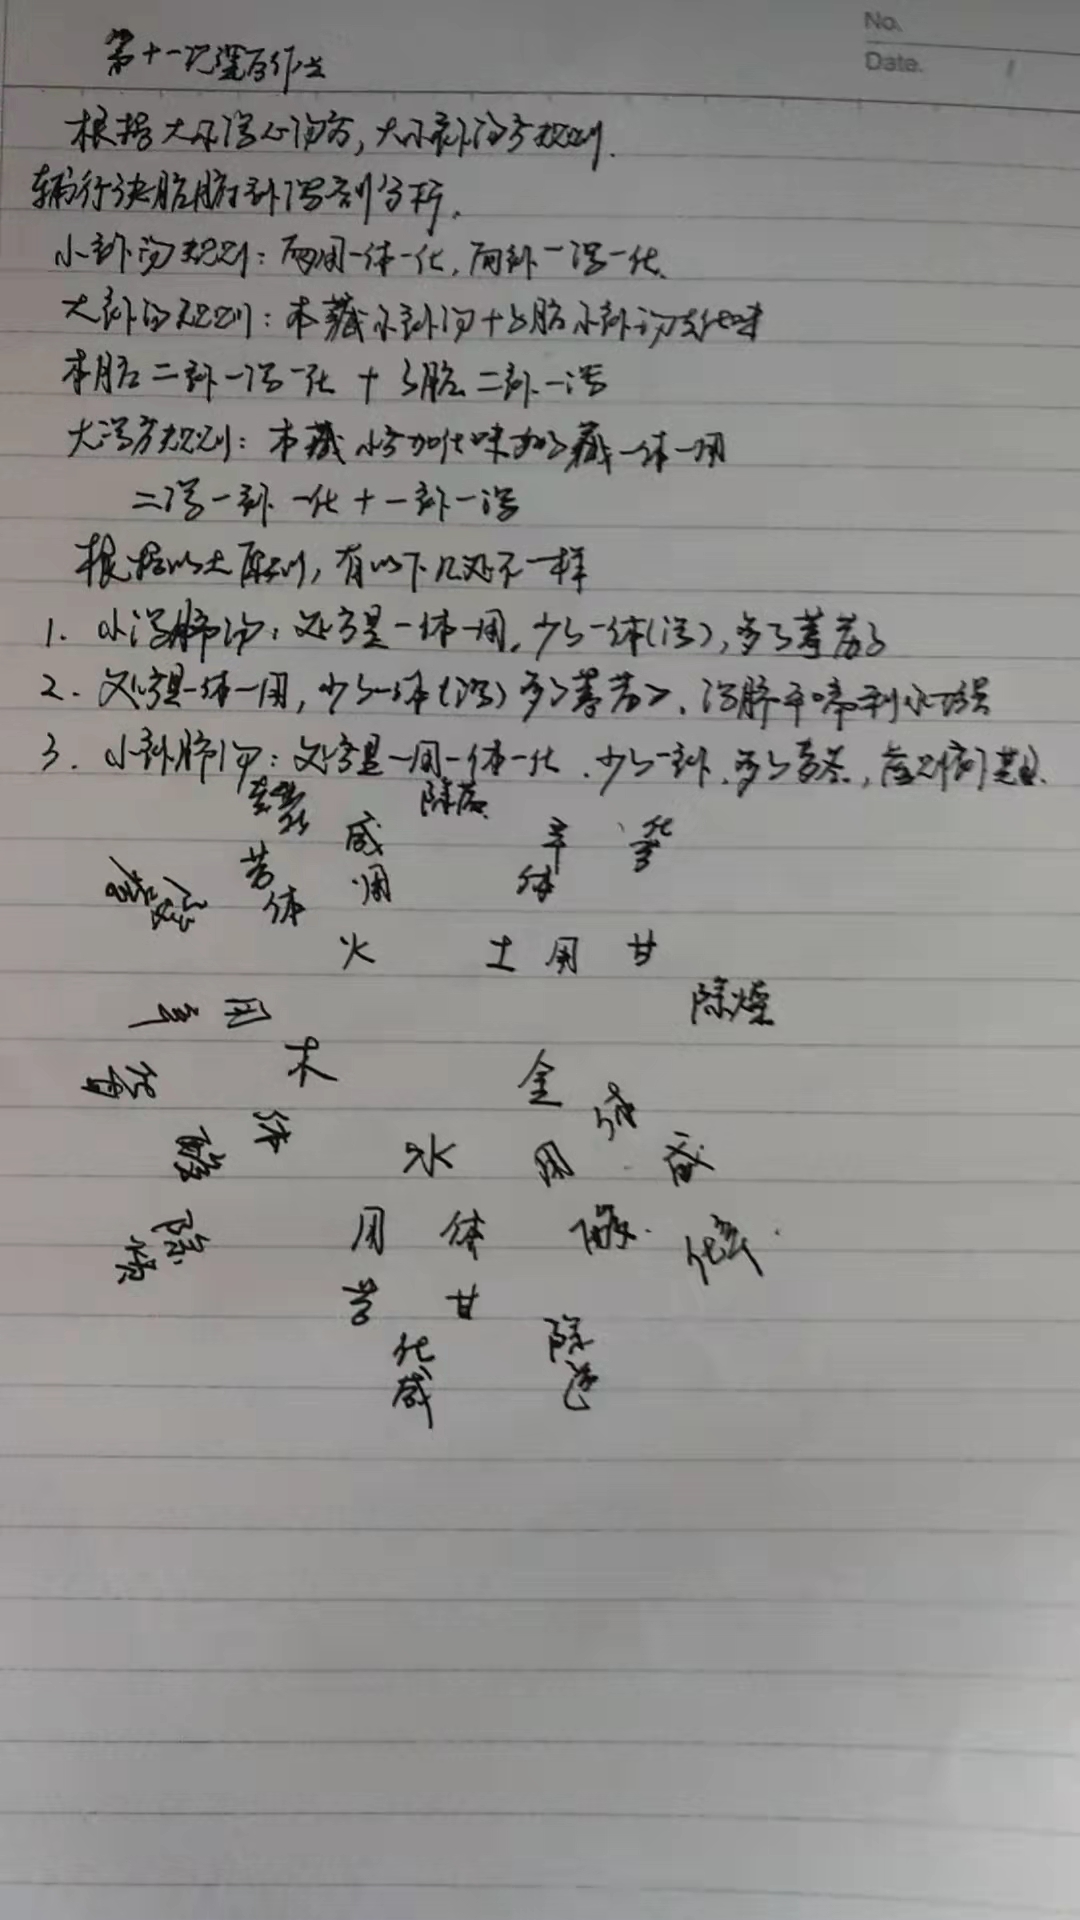 No.
Date.
第十一次课后作业
根据大小泻心汤方，大小补汤方规则.
辅行诀脏腑补泻割分析.
小补汤规则：两用一体一化，两补一泻一化.
大补汤规则：本藏小补汤+子脏小补汤去化味
本脏二补一泻一化 + 子脏二补一泻
大泻方规则：本藏小方加化味加子藏一体一用
二泻一补一化+一补一泻
根据以上原则，有以下几处不一样
1. 小泻肺汤：处方是一体一用，少了一体(泻)，多了葶苈子
2. 处方是一体一用，少了一体(泻)多了葶苈子，泻肺平喘利水
3. 小补肺汤：处方是一用一体一化，少了一补，多了麦冬，
除痞
苦 咸 辛 化苦
体 用 体
火 土 用 甘
除燥
辛 用
木 金 体
化甘
酸 体 水 用 咸
除
用 体 酸 化辛
苦 甘 除
化
咸